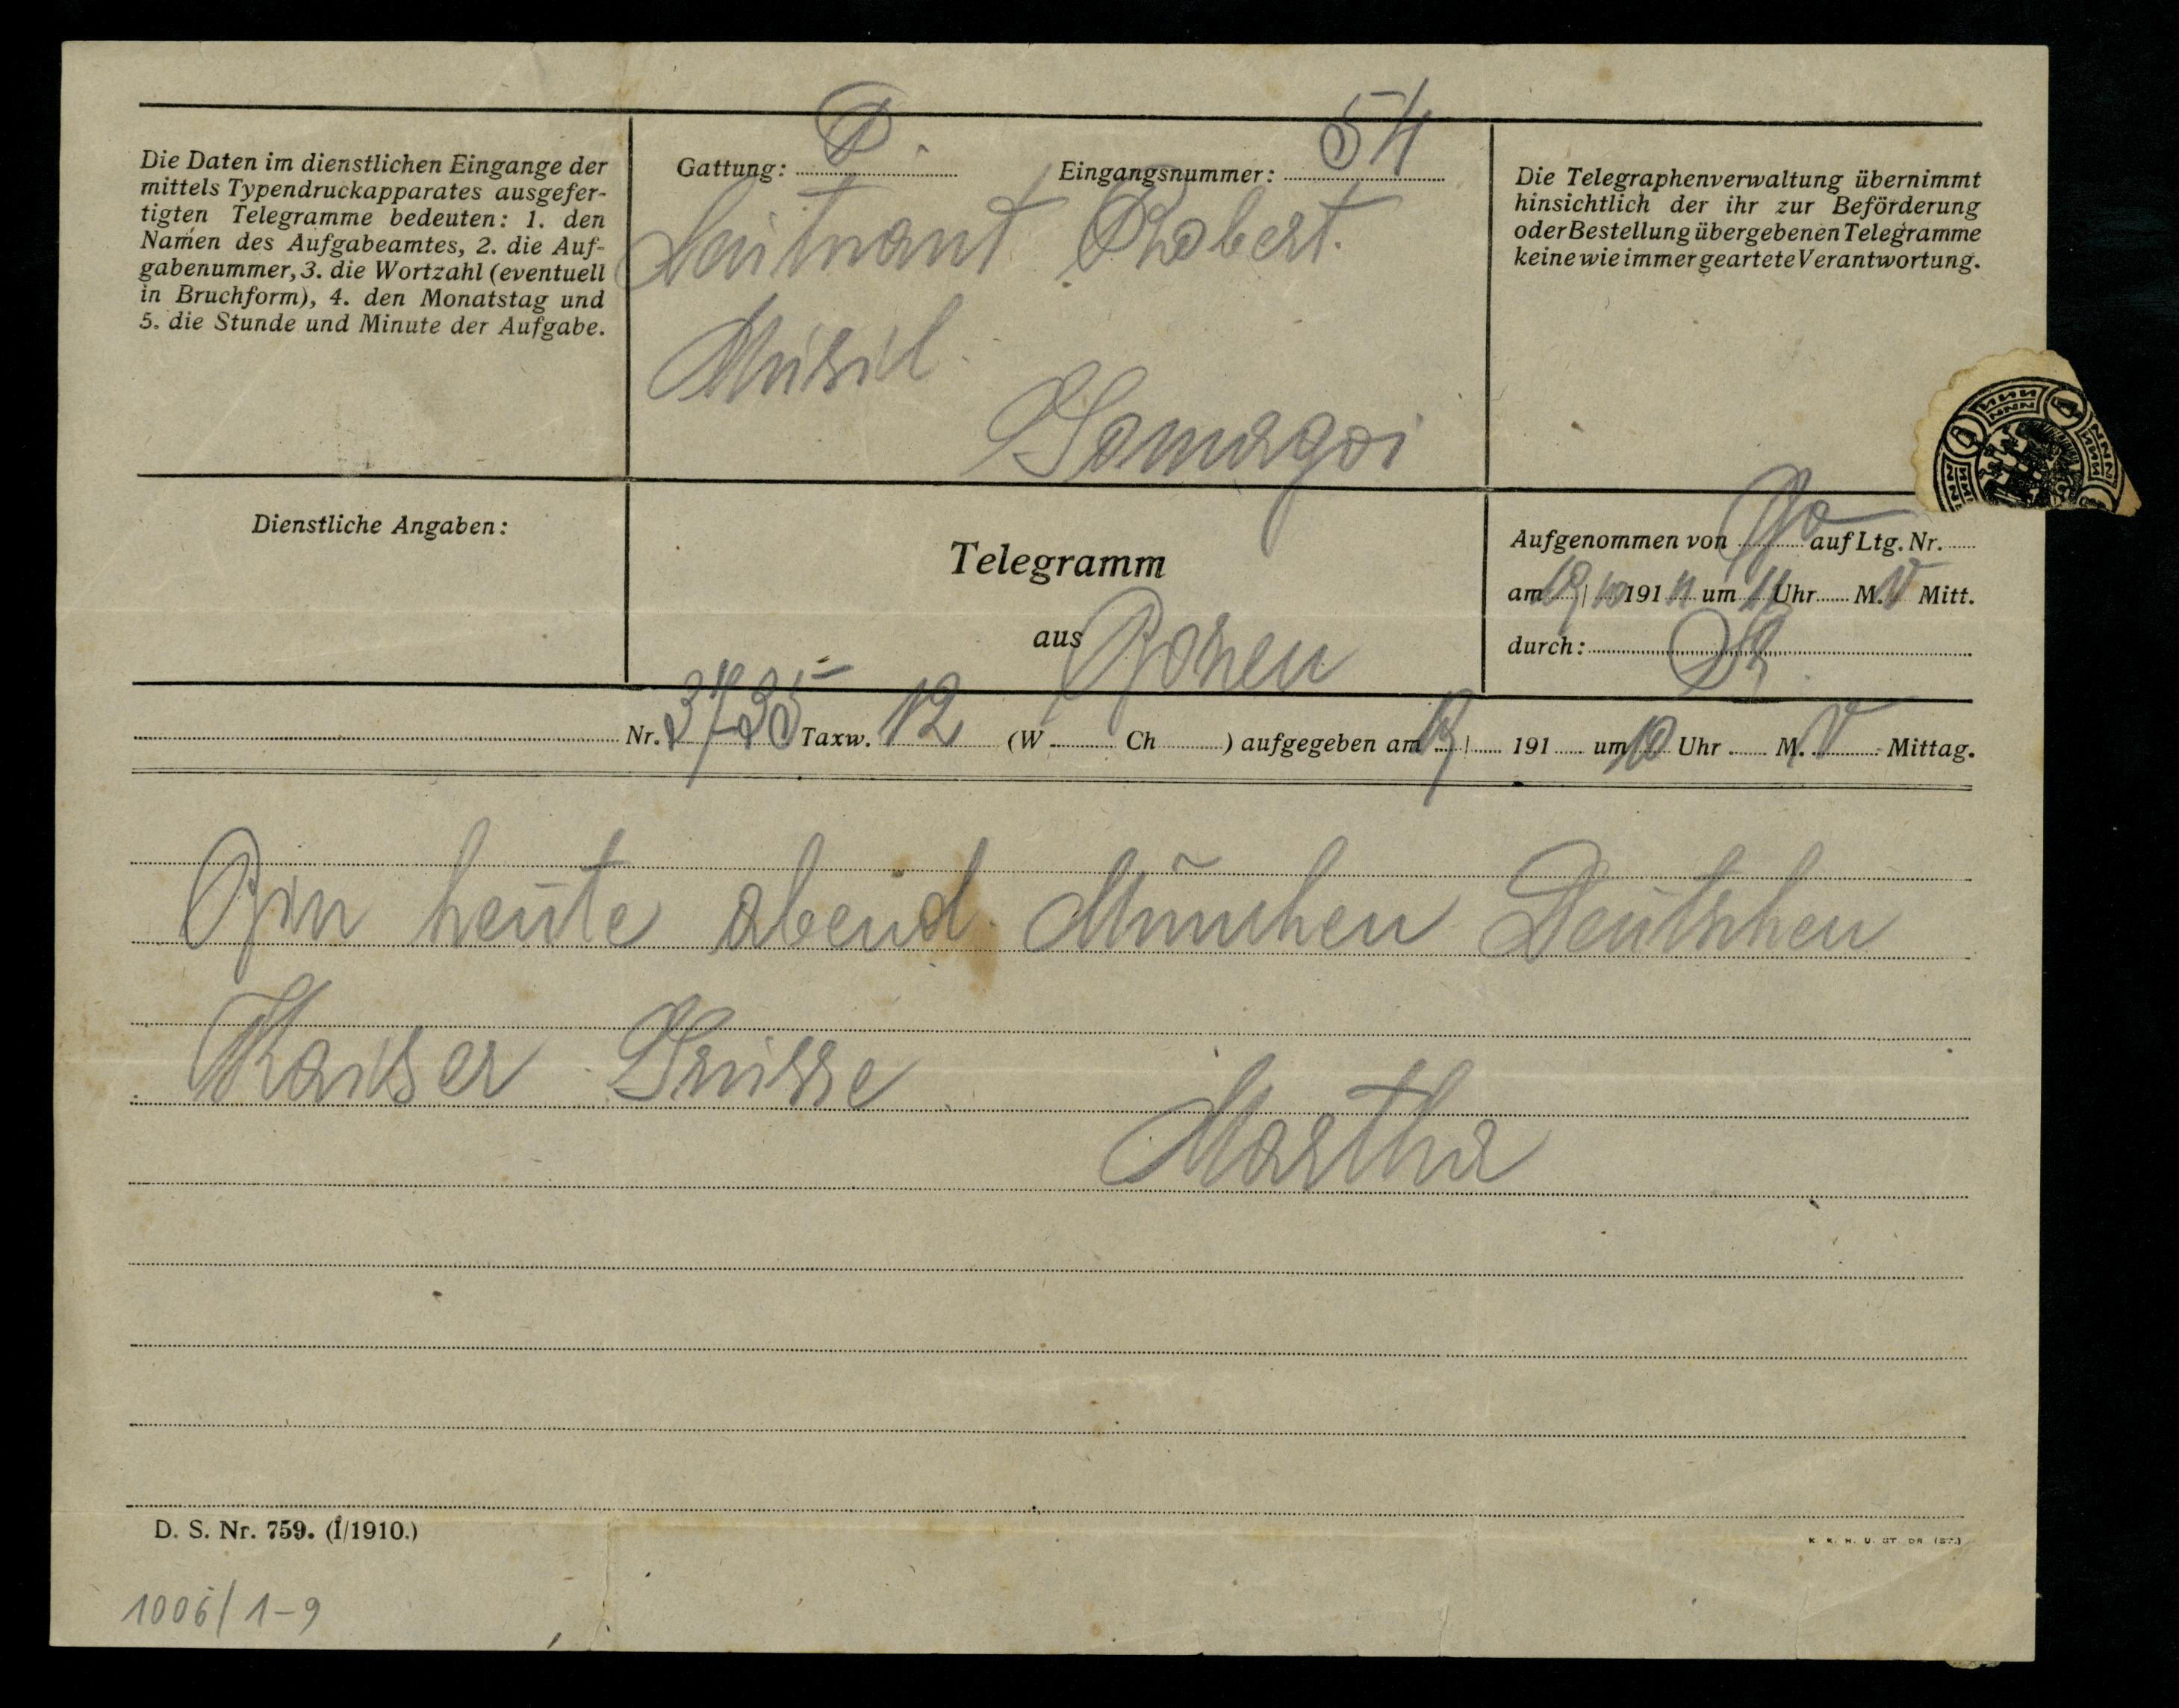 Die Daten im dienstlichen Eingange der
mittels Typendruckapparates ausgefer-
tigten Telegramme bedeuten: 1. den
Namen des Aufgabeamtes, 2. die Auf-
gabenummer, 3. die Wortzahl (eventuell
in Bruchform), 4. den Monatstag und
5. die Stunde und Minute der Aufgabe.
Gattung: D. Eingangsnummer: 54
Leutnant Robert
Musil
Gomagoi
Die Telegraphenverwaltung übernimmt
hinsichtlich der ihr zur Beförderung
oder Bestellung übergebenen Telegramme
keine wie immer geartete Verantwortung.
Dienstliche Angaben:
Telegramm
aus Bozen
Aufgenommen von auf Ltg. Nr.
am 19/10 191 um 11 Uhr M. V Mitt.
durch:
Nr. 3735 Taxw. 12 (W Ch ) aufgegeben am 19/ 191 um 10 Uhr M. V Mittag.
Bin heute abend München Deutschen
Kaiser Grüsse
Martha
D. S. Nr. 759. (I/1910.)
K. K. H. U. ST. DR. (ST.)
1006/1-9